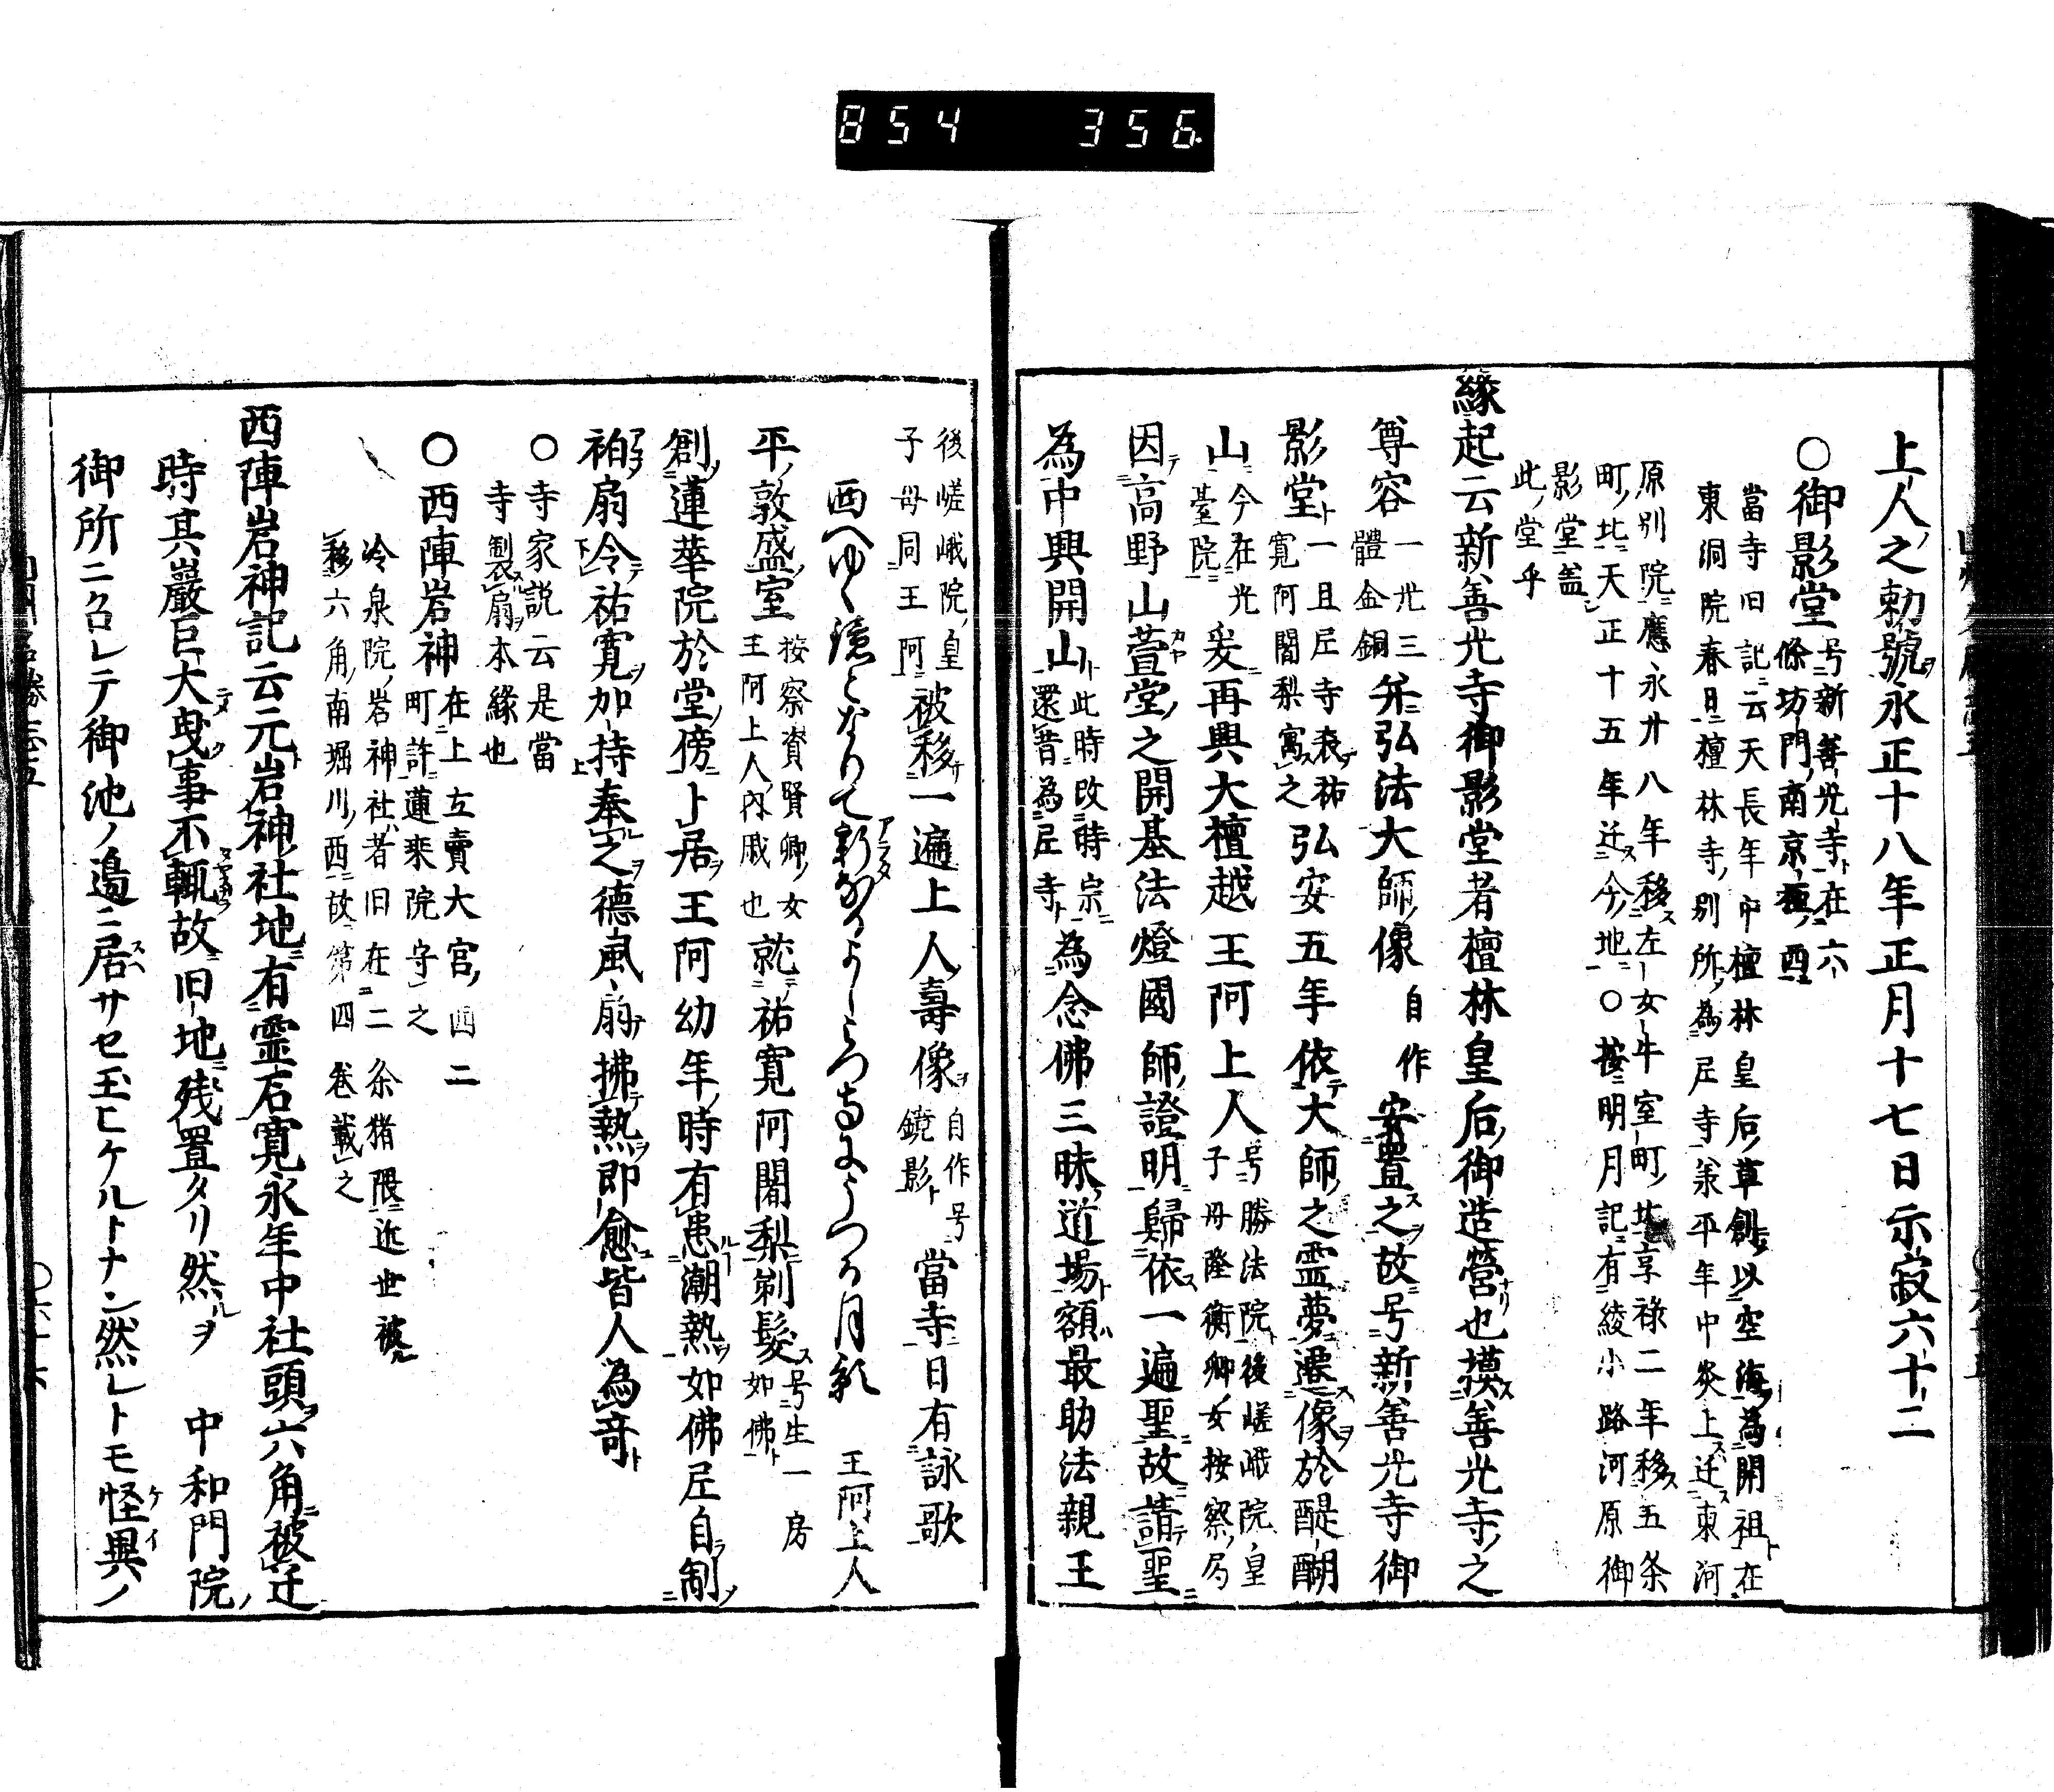 854 356
上人之勅號永正十八年正月十七日示寂六十二
○御影堂
号新善光寺在六
條坊門南京極西
當寺旧記云天長年中檀林皇后草創以空海為開祖在
東洞院春日檀林寺別所為尼寺兼平年中炎上迁東河
原別院應永廿八年移左女牛室町其享祿二年移五条
町北天正十五年迁今地○按明月記有綾小路河原御
影堂盖
此堂乎
縁起云新善光寺御影堂者檀林皇后御造營也摸善光寺之
尊容
一光三
體金銅
并弘法大師像
自作
安置之故号新善光寺御
影堂
一旦尼寺衰祐
寛阿闍梨寓之
弘安五年依大師之霊夢遷像於醍醐
山
今在光
臺院
爰再興大檀越王阿上人
号勝法院後嵯峨院皇
子母隆衡卿女按察局
因高野山萱堂之開基法燈國師證明歸依一遍聖故請聖
為中興開山
此時改時宗
還昔為尼寺
為念佛三昧道場額最助法親王
後嵯峨院皇
子母同王阿
被移一遍上人壽像
自作号
鏡影
當寺日有詠歌
西へゆく
月影
王阿上人
平敦盛室
按察資賢卿女
王阿上人内戚也
就祐寛阿闍梨剃髮
号生一房
如佛
創蓮華院於堂傍卜居王阿幼年時有患潮熱如佛尼自制
袙扇令祐寛加持奉之德風扇拂熱即愈皆人為奇
○寺家説云是當
寺製扇本縁也
○西陣岩神
在上立賣大宮西二
町許蓮乘院守之
冷泉院岩神社者旧在二条猪隈近世被
移六角南堀川西故第四卷載之
西陣岩神記云元岩神社地有霊石寛永年中社頭六角被迁
時其巖巨大曳事不輙故旧地残置タリ然ルヲ 中和門院
御所ニクロレテ御池ノ邉ニ居サセ玉ヒケルトナン然レトモ怪異ノ